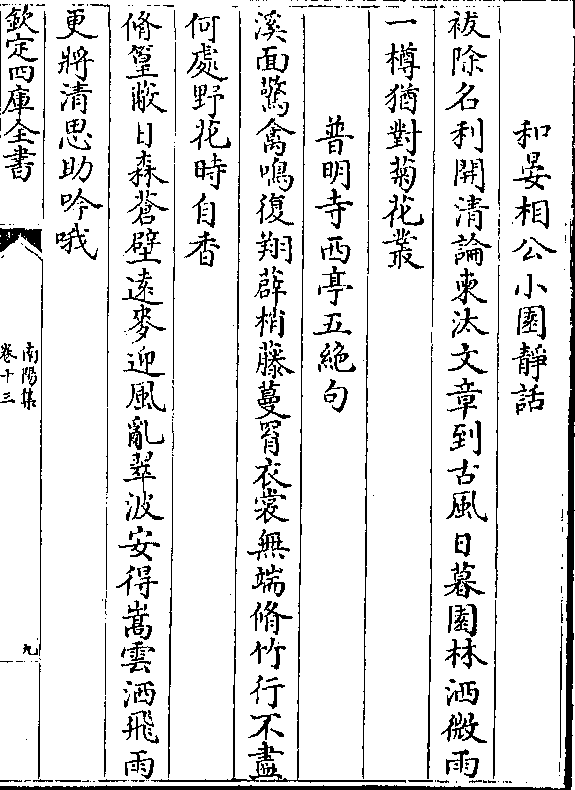 和晏相公小園靜話
祓除名利開清論東汰文章到古風日暮園林洒微雨
一樽猶對菊花叢
普明寺西亭五絶句
溪面驚禽鳴復翔薜梢藤蔓罥衣裳無端脩竹行不盡
何處野花時自香
脩篁蔽日森蒼壁遠麥迎風亂翠波安得嵩雲洒飛雨
更將清思助吟哦
欽定四庫全書
南陽集
卷十三
九